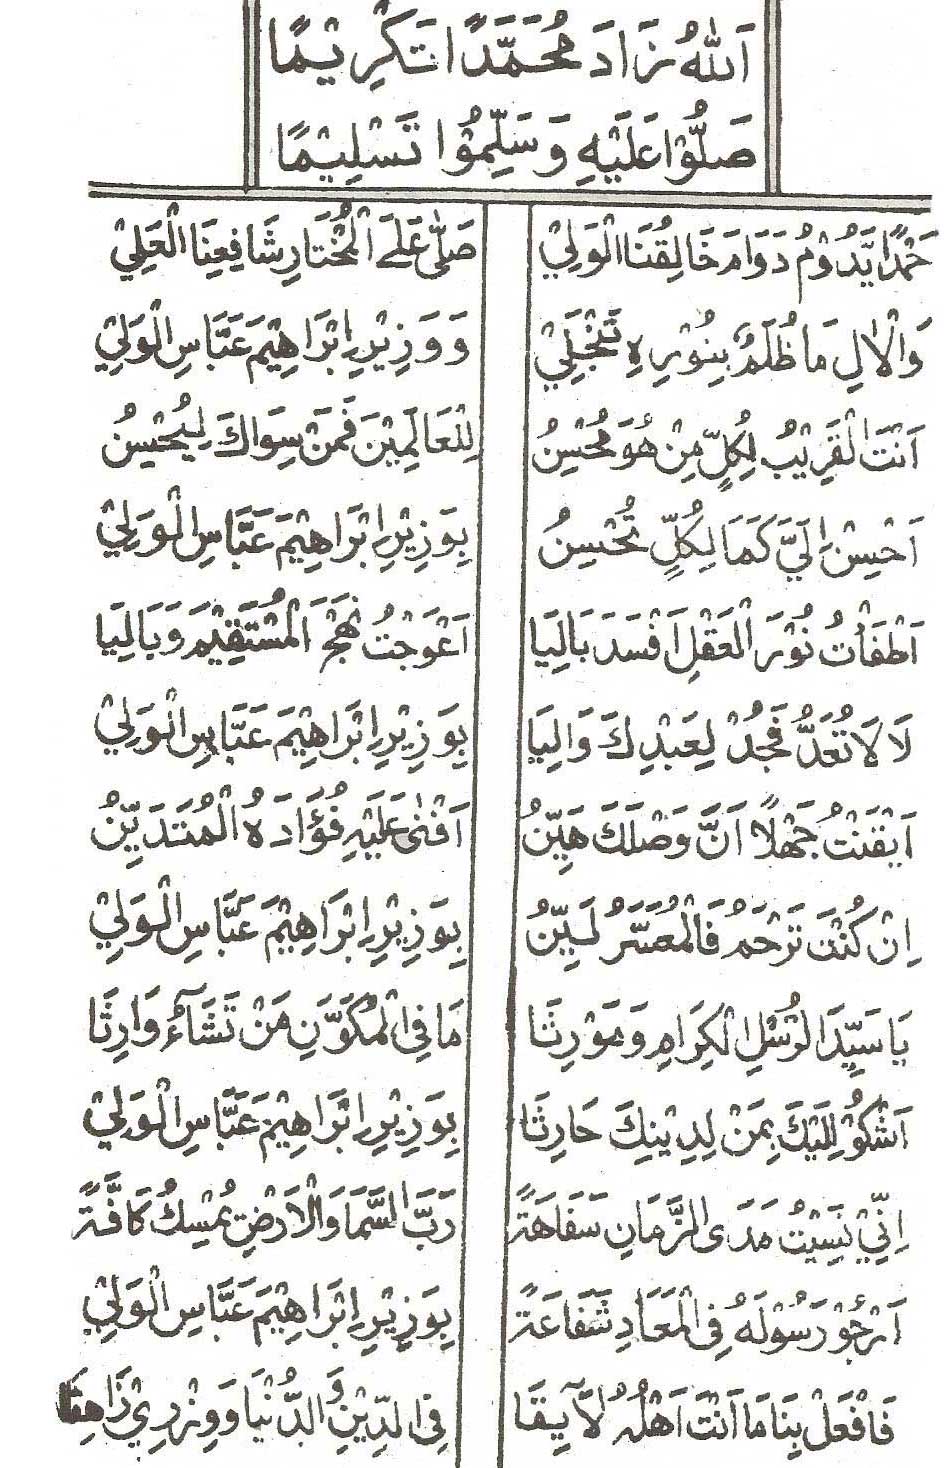 اَللّٰهُ زَادَ مُحَمَّدًا تَكْرِيْمًا
صَلُّوْا عَلَيْهِ وَسَلِّمُوْا تَسْلِيْمًا
حَمْدًا يَّدُوْمُ دَوَامَ خَالِقُنَا الْوَلِيْ صَلّٰى عَلَى الْمُخْتَارِ شَافِعِنَا الْعَلِيْ
وَالْاٰلِ مَا ظُلَمٌ بِنُوْرِهِ تَنْجَلِيْ وَوَزِيْرِ اِبْرَاهِيْمَ عَبَّاسِ الْوَلِيْ
اَنْتَ الْقَرِيْبُ لِكُلِّ مِنْ هُوَ مُحْسِنُ لِلْعَالَمِيْنَ فَمَنْ سِوَاكَ لِيُحْسِنُ
اَحْسِنْ اِلَيَّ كَمَا لِكُلٍّ تُحْسِنُ بِوَزِيْرِ اِبْرَاهِيْمَ عَبَّاسِ الْوَلِيْ
اَطْفَأْتُ نُوْرَ الْعَقْلِ اَفْسَدَ بَالِيَا اَعْوَجْتُ نَهْجَ الْمُسْتَقِيْمِ وَبَالِيَا
لَا لَا تُعَدُّ فَجُدْ لِعَبْدِكَ وَالِيَا بِوَزِيْرِ اِبْرَاهِيْمَ عَبَّاسِ الْوَلِيْ
اَيْقَنْتُ جَهْلًا اَنَّ وَصْلَكَ هَيِّنُ اَفْنٰى عَلَيْهِ فُؤَادَهُ الْمُتَدَيِّنُ
اِنْ كُنْتَ تَرْحَمُ فَالْمُعَسَّرُ لَيِّنُ بِوَزِيْرِ اِبْرَاهِيْمَ عَبَّاسِ الْوَلِيْ
يَا سَيِّدَ الرُّسْلِ الْكِرَامِ وَمَوْرِثَا مَا فِي الْمُكَوَّنِ مَنْ تَشَآءُ وَارِثَا
اَشْكُوْ اِلَيْكَ بِمَنْ لِدِيْنِكَ حَارِثَا بِوَزِيْرِ اِبْرَاهِيْمَ عَبَّاسِ الْوَلِيْ
اِنِّيْ نَسِيْتُ مَدَى الزَّمَانِ سَفَاهَةً رَبَّ السَّمَا وَالْاَرْضِ يُمْسِكُ كَافَّةً
اَرْجُوْ رَسُوْلَهُ فِي الْمَعَادِ شَفَاعَةً بِوَزِيْرِ اِبْرَاهِيْمَ عَبَّاسِ الْوَلِيْ
فَافْعَلْ بِنَا مَا اَنْتَ اَهْلُهُ لَآيِقَا فِي الدِّيْنِ وَالدُّنْيَا وَوِزْرِيْ زَاهِقَا